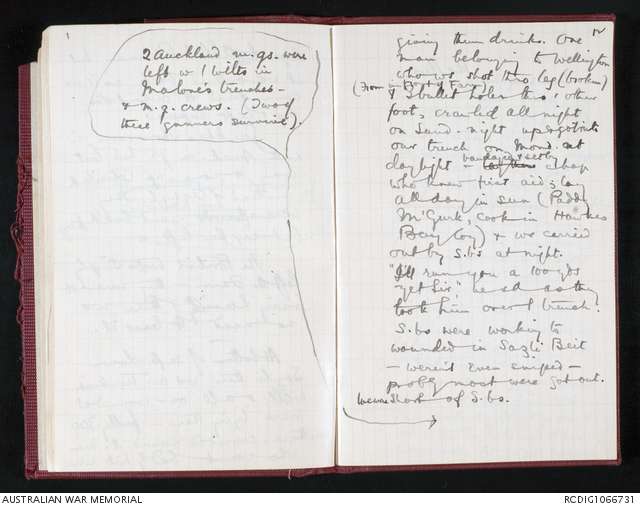 1
2 Auckland m.gs. were
left w 1 Wilts in
Malone's trenches -
& m.g. crews. (Two of
these gunners survived).
12
giving them drinks. One
man belonging to Wellington
who ws shot thro leg (broken)
(From in front of Farm)
& 3 bullet holes thro' other
foot, crawled all night
on Sund. night up & got into
our trench on Mond. at
daylight & bandaged & set by chap
who knew first aid; lay
all day in sun (Paddy
McGurk, cook in Hawkes
Bay Coy) & ws carried
out by S.bs at night.
"I'll run you a 100 yds
yet Sir" he sd as they
took him over / trench.
S.bs were working to
wounded in Sazli Beit
- weren't even sniped -
probly most were got out.
We were short of S.bs.
AUSTRALIAN WAR MEMORIAL
RCDIG1066731